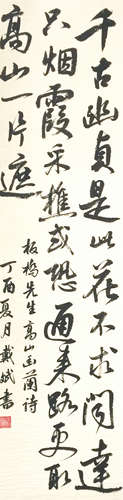 千古幽貞是此花不求聞達
只烟霞采樵或恐通来路更取
高山一片遮
板橋先生高山幽蘭詩
丁酉夏月戴斌書